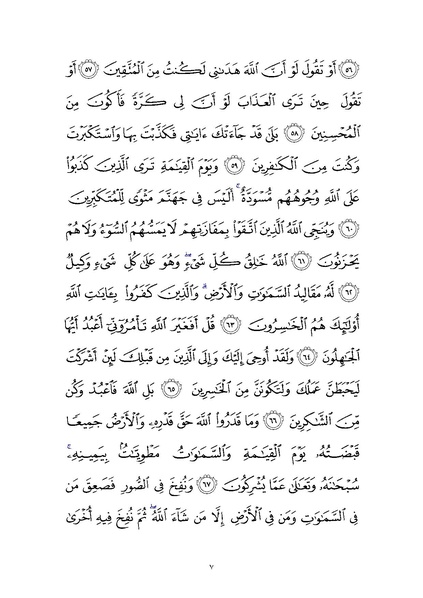 ﴿٥٦﴾ أَوْ تَقُولَ لَوْ أَنَّ اللَّهَ هَدَىٰنِي لَكُنتُ مِنَ الْمُتَّقِينَ ﴿٥٧﴾ أَوْ
تَقُولَ حِينَ تَرَى الْعَذَابَ لَوْ أَنَّ لِي كَرَّةً فَأَكُونَ مِنَ
الْمُحْسِنِينَ ﴿٥٨﴾ بَلَىٰ قَدْ جَآءَتْكَ ءَايَٰتِي فَكَذَّبْتَ بِهَا وَاسْتَكْبَرْتَ
وَكُنتَ مِنَ الْكَٰفِرِينَ ﴿٥٩﴾ وَيَوْمَ الْقِيَٰمَةِ تَرَى الَّذِينَ كَذَبُوا۟
عَلَى اللَّهِ وُجُوهُهُم مُّسْوَدَّةٌ ۚ أَلَيْسَ فِي جَهَنَّمَ مَثْوًى لِّلْمُتَكَبِّرِينَ
﴿٦٠﴾ وَيُنَجِّي اللَّهُ الَّذِينَ اتَّقَوْا۟ بِمَفَازَتِهِمْ لَا يَمَسُّهُمُ السُّوٓءُ وَلَا هُمْ
يَحْزَنُونَ ﴿٦١﴾ اللَّهُ خَٰلِقُ كُلِّ شَيْءٍ ۖ وَهُوَ عَلَىٰ كُلِّ شَيْءٍ وَكِيلٌ
﴿٦٢﴾ لَّهُ مَقَالِيدُ السَّمَٰوَٰتِ وَالْأَرْضِ ۗ وَالَّذِينَ كَفَرُوا۟ بِـَٔايَٰتِ اللَّهِ
أُو۟لَٰٓئِكَ هُمُ الْخَٰسِرُونَ ﴿٦٣﴾ قُلْ أَفَغَيْرَ اللَّهِ تَأْمُرُوٓنِّيٓ أَعْبُدُ أَيُّهَا
الْجَٰهِلُونَ ﴿٦٤﴾ وَلَقَدْ أُوحِيَ إِلَيْكَ وَإِلَى الَّذِينَ مِن قَبْلِكَ لَئِنْ أَشْرَكْتَ
لَيَحْبَطَنَّ عَمَلُكَ وَلَتَكُونَنَّ مِنَ الْخَٰسِرِينَ ﴿٦٥﴾ بَلِ اللَّهَ فَاعْبُدْ وَكُن
مِّنَ الشَّٰكِرِينَ ﴿٦٦﴾ وَمَا قَدَرُوا۟ اللَّهَ حَقَّ قَدْرِهِۦ وَالْأَرْضُ جَمِيعًا
قَبْضَتُهُۥ يَوْمَ الْقِيَٰمَةِ وَالسَّمَٰوَٰتُ مَطْوِيَّٰتٌۢ بِيَمِينِهِۦ ۚ
سُبْحَٰنَهُۥ وَتَعَٰلَىٰ عَمَّا يُشْرِكُونَ ﴿٦٧﴾ وَنُفِخَ فِي الصُّورِ فَصَعِقَ مَن
فِي السَّمَٰوَٰتِ وَمَن فِي الْأَرْضِ إِلَّا مَن شَآءَ اللَّهُ ۖ ثُمَّ نُفِخَ فِيهِ أُخْرَىٰ
٧